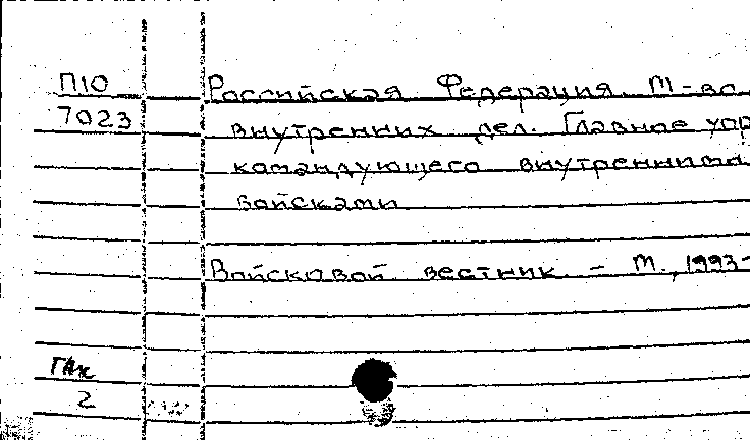 П10
Российская Федерация. М-во
7023
внутренних дел. Главное упр
командующего внутренними
войсками
Войсковой вестник. - М., 1993-
ГАЖ
2